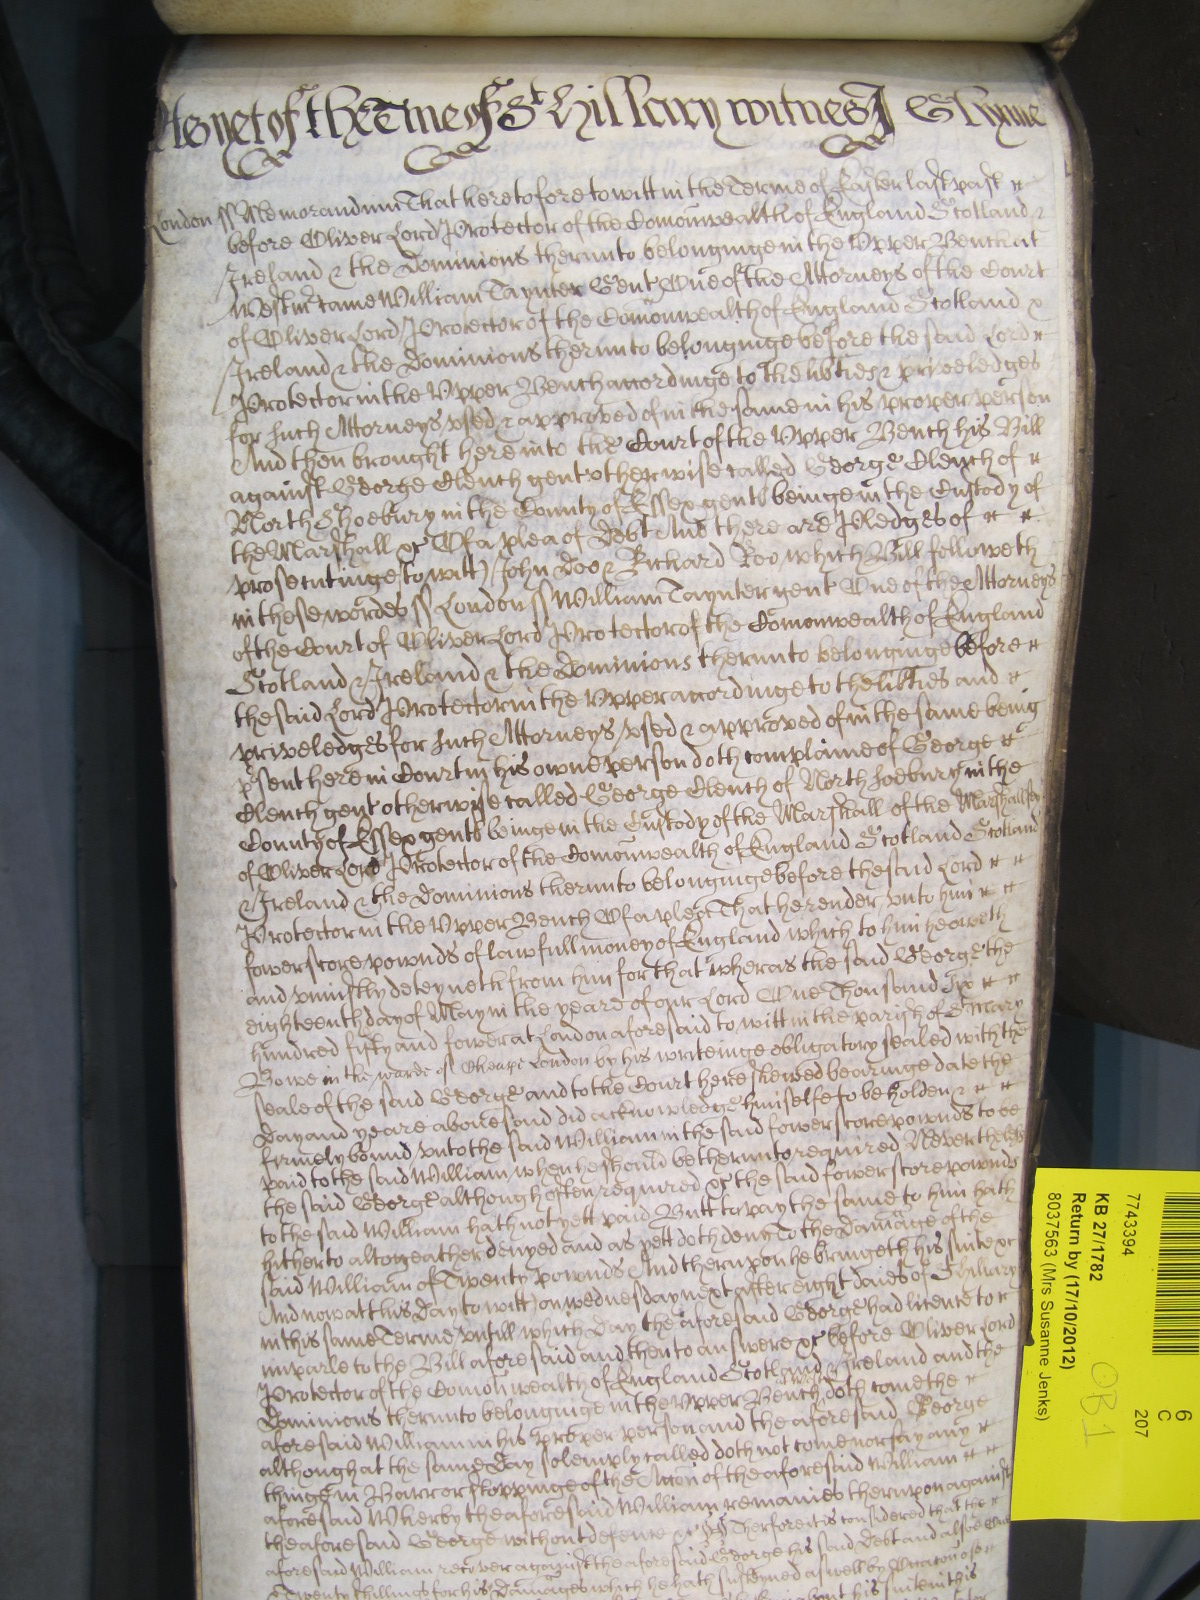 As yet of the Tme of St Hillary witnes J Glynne
London ss Memorandum That heretofore to witt in the Terme of Easter last past
before Oliver Lord Protector of the Comonwealth of England Scotland &
Ireland & the Dominions therunto belonginge in the Upper Bench at
Westmr came William Taynter Gent One of the Attorneys of the Court
of Oliver Lord Protector of the Comonwealth of England Scotland &
Ireland & the Dominions therunto belonginge before the said Lord
Protector in the Upper Bench accordinge to the libties & priveledges
for such Attorneys used & approved of in the same in his proper person
And then brought here into the Court of the Upper Bench his Bill
against George Clench gent otherwise called George Clench of
North Shoebury in the County of Essex gent beinge in the Custody of
the Marshall &c Of a plea of Debt And there are Pledges of
prosecutinge (to witt) John Doo & Richard Roo which Bill followeth
in these wordes ss London ss William Taynter gent One of the Attorneys
of the Court of Oliver Lord Protector of the Comonwealth of England
Scotland & Ireland & the Dominions therunto belonginge before
the said Lord Protector in the Upper accordinge to the libties and
priveledges for such Attorneys used & approved of in the same being
psent here in Court in his owne person doth complaine of George
Clench gent otherwise called George Clench of North Shoebury in the
County of Essex gent beinge in the Custody of the Marshall of the Marshallsey
of Oliver Lord Protector of the Comonwealth of England Scotland Scotland
& Ireland & the Dominions therunto belonginge before the said Lord
Protector in the Upper Bench Of a plea That he render unto him
fower score pownds of lawfull money of England which to him he oweth
and uniustly deteyneth from him for that wheras the said George the
eighteenth day of May in the yeare of our Lord One Thousand Six
hundred fifty and fower at London aforesaid to witt in the parish of St Mary
Bowe in the warde of Cheape London by his writeinge obligatory sealed with the
seale of the said George and to the Court here shewed bearinge date the
Day and yeare abovesaid did acknowledge himselfe to be holden &
firmely bound unto the said William in the said fower score pownds to be
paid to the said William when he should be therunto required Neverthelesse
the said George although often required &c the said fower score pownds
to the said William hath not yett paid Butt to pay the same to him hath
hitherto altogeather denyed and as yett doth deny To the Damage of the
said William of Twenty pownds And therupon he bringeth his suite &c
And now at this Day to witt) on wednesday next after eight daies of St Hillary
in this same Terme untill which Day the aforesaid George had licence to
imparle to the Bill aforesaid and then to answere &c before Oliver Lord
Protector of the Comonwealth of England Scotland Ireland and the
Dominions therunto belonginge in the Upper Bench doth come the
aforesaid William in his proper person and the aforesaid George
although at the same Day solemply called doth not come nor say any
thinge in Barr or stoppinge of the Accon of the aforesaid William
aforesaid Wherby the aforesaid William remaines therupon against
the aforesaid George without defence &c Therfore it is considered that the
aforesaid William recover against the aforesaid George his said Debt and alsoe
Twenty shillings for his Damages which he hath susteyned aswell by occacon of
7743394
KB 27/1782
Return by (17/10/2012)
8037563 (Mrs Susanne Jenks)
6
C
207
OB1